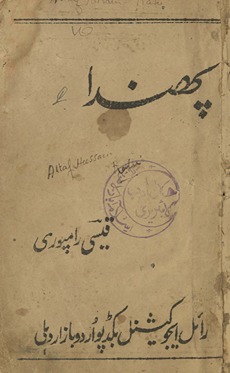 پھندا
Altaf Hussain
قیسی رامپوری
رائل ایجوکیشنل بکڈپو اردو بازار دہلی